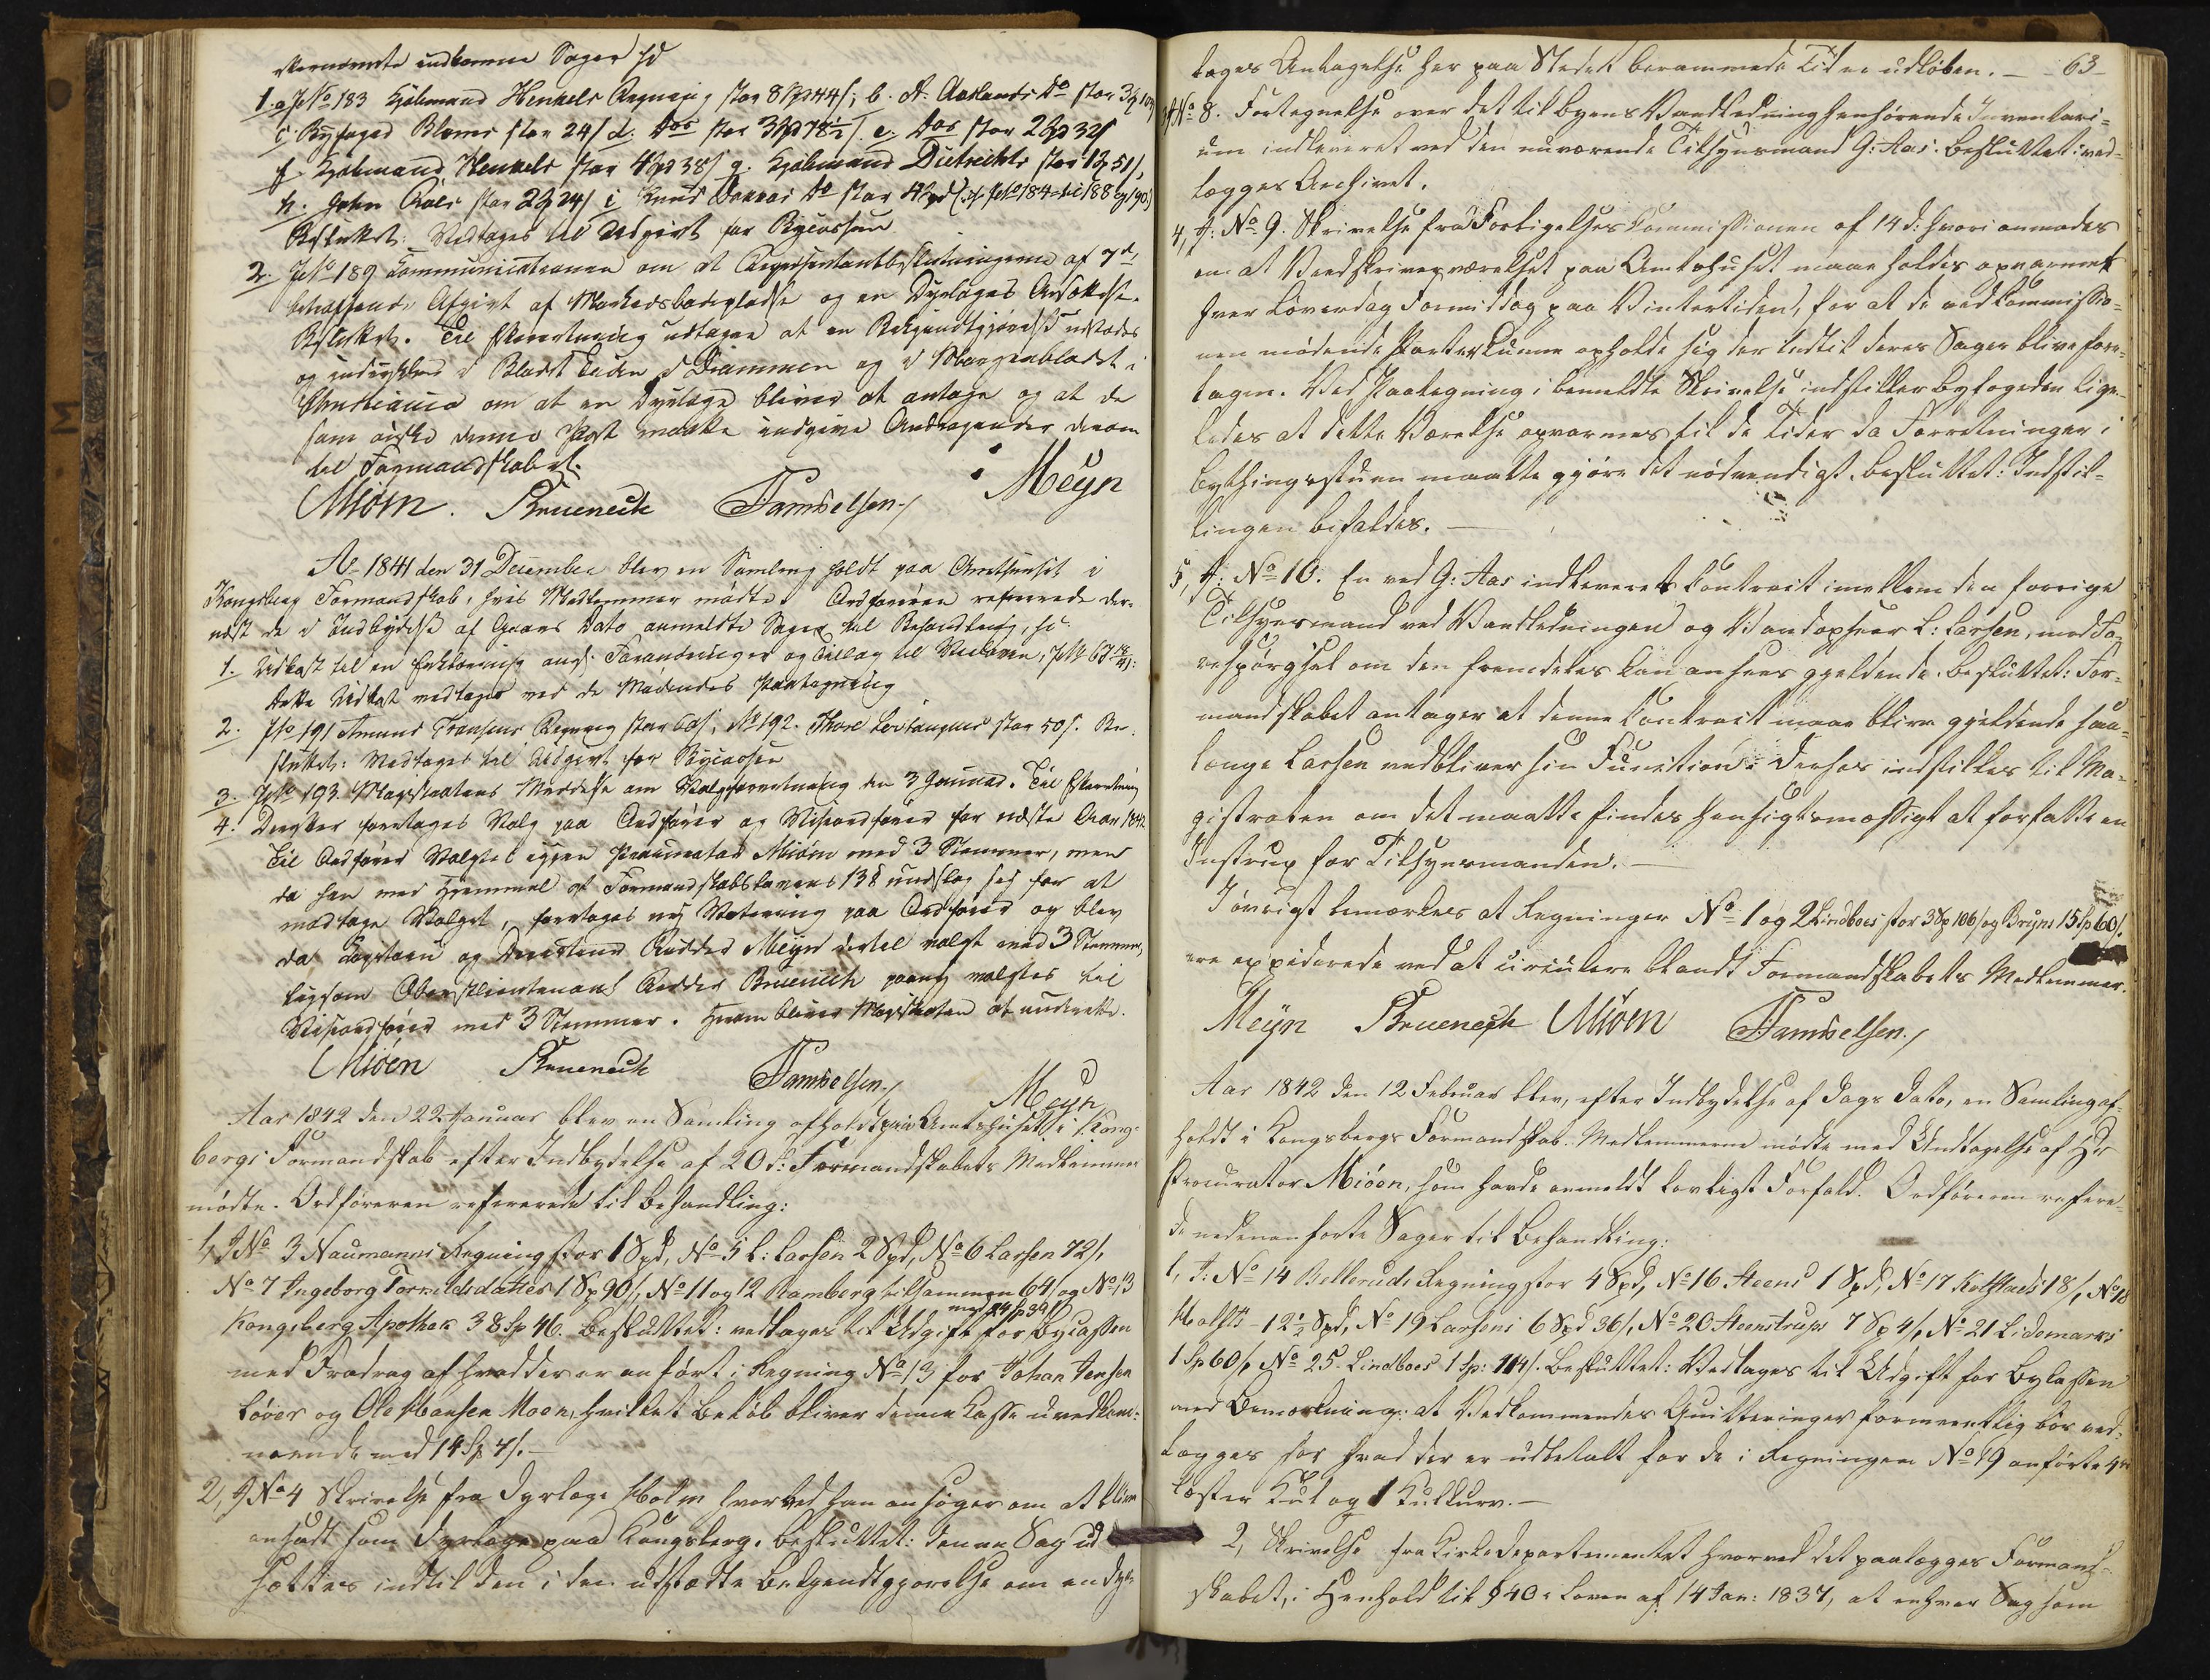 indkomne Sager
1. a JNo 183 Kjøbmand Henkels Regning stor 8 Spd 44 s; b. A. Aaslands Do stor
c. Byfoged Bloms stor 24 s d. Dos stor 3 Spd 78½ s e. Dos stor 2 Spd 32 s
f. Kjøbmand Henkels stor 4 Spd 38 s g. Kjøbmand Dietrichs stor 1 Sp 51 s,
h. John stor 2 Sp 24 s i Knud Do stor 4 Spd (184 til 188 og 190)
Besluttet: Vedtages til Udgivt for Bycassen
2. JNo 189 Communicationen om at Repræsentantbeslutningerne af 7de
betræffende Afgivt af Markedsbodepladse og en Dyrlæges Ansættelse.
Besluttet. Til Efterretning udtages at en Bekjendtgjørelse udstædes
og indrykkes i Bladet Tiden i Drammen og i Morgenbladet i
Christiania om at en Dyrlæge bliver at antage og at de
som ønske denne Post maatte indgive Andragender derom
til Formandskabet.
Miöen. Brueneck Samuelsen Meyn
Ao 1841 den 31 December blev en Samling holdt paa Amthuuset i
Kongsberg Formandskab, hvis Medlemmer mødte. Ordføreren refererede der-
næst de i Indbydelse af Gaars Dato anmeldte Sager til Behandling, so
1. Udkast til en Erklæring ang. Forandringer og Tillæg til Veiloven, JNo 67
Dette Udkast vedtages ved de Mødendes Paategning
2. JNo 191 Amund Fransens Regning stor 60 s, No 192. Thore stor 50 s. Be-
sluttet: Vedtages til Udgivt for Bycassen
3. JNo 193. Magistratens Meddelse om Valgforretning den 3 Januar. Til Efterretning
4. Derefter foretages Valg paa Ordfører og Viceordfører for næste Aar 1842
Til Ordfører Valgtes igjen Procurator Miöen med 3 Stemmer, men
da han med Hjemmel af Formandskabslovens § 38 undslog sig for at
modtage Valget, foretages ny Votering paa Ordfører og blev
da Capitain og Ridder Meyn dertil valgt med 3 Stemmer,
ligesom Oberstlieutenant Ridder Brueneck valgtes til
Viceordfører med 3 Stemmer. Herom bliver Magistraten at underrette.
Miöen Brueneck Samuelsen Meyn
Aar 1842 den 22 Januar blev en Samling afholdt paa Amtshuset i Kongs-
bergs Formandskab efter Indbydelse af 20 d: Formandskabets Medlemmer
mødte. Ordføreren refererede til Behandling:
1, JNo 3 Naumanns Regning stor 1 Spd, No 5 L: Larsen 2 Spd, No 6 Larsen 72 s,
No 7 Ingeborg Torrildsdatters 1 Sp 90 s, No 11 og 12 Bamberg tilsammen 64 s og No 13
med 24 Sp 39 s
Kongsberg Apothek 38 Sp 46. Besluttet: vedtages til Udgift for Bycassen
med Fradrag af hvad der er anført i Regning No 13 for Johan Jensen
Løver og Ole Hansen Moen, hvilket Beløb bliver denne Casse uvedkom-
mende med 14 Sp 7 s. —
2, JNo 4 Skrivelse fra Dyrlæge Holm hvorved han ansøger om at blive
ansadt som Dyrlæge paa Kongsberg. Besluttet: denne Sag ud-
sættes indtil den i den udstædte Bekjendtgjørelse om en Dyr-
63
læges Antagelse her paa Stedet berammede Tid er udløben. —
JNo 8. Fortegnelse over det til byens Vandledning henhørende Inventari-
um indleveret ved den nuværende Tilsynsmand G: Aas. Besluttet: ved-
lægges Archivet.
4, J: No 9. Skrivelse fra Forligelses Commissionen af 14 d: hvori anmodes
om at Værelset paa Amtshuset maae holdes opvarmet
hver Løverdag Formiddag paa Vintertiden, for at de ved Commissio-
nen mødende Parter kunne opholde sig der indtil deres Sager blive fore-
tagne. Ved Paategning i bemeldte Skrivelse indstiller Byfogeden lige-
ledes at dette Værelse opvarmes til de Tider da Forretninger i
Bythingsstuen maatte gjøre det nødvendigt. Besluttet: Indstil-
lingen bifaldes. —
5, J: No 10. En ved G: Aas indleveret Contract imellem den forrige
Tilsynsmand ved Vandledningen og Vandopseer L: Larsen, med Fo-
respørgsel om den fremdeles kan ansees gjeldende. Besluttet: For-
mandskabet antager at denne Contract maae blive gjeldende saa-
længe Larsen vedbliver sin Function. Derhos indstilles til Ma-
gistraten om det maatte findes hensigtsmæssigt at forfatte en
Instrux for Tilsynsmanden. —
Iøvrigt bemærkes at Regninger No 1 og 2 Lindboes stor 3 Sp 106 s og Bruns 15 Sp 60 s.
ere expiderede ved at circulere blandt Formandskabets Medlemmer.
Meyn Brueneck Miöen Samuelsen
Aar 1842 den 12 Februar blev, efter Indbydelse af Dags Dato, en Samling af-
holdt i Kongsbergs Formandskab. Medlemmerne mødte med Undtagelse af Hr
Procurator Miöen, som havde anmeldt lovligt Forfald. Ordføreren refere-
de nedenanførte Sager til Behandling:
1, J: No 14 Bellerud's Regning stor 4 Spd, No 16 Steens 1 Spd, No 17 Kolstads 18 s, No 18
Holfts 12½ Spd, No 19 Larsens 6 Spd 36 s, No 20 Steenstrups 7 Sp 4 s, No 21 Lidemarks
1 Sp 60 s, No 25. Lindboes 1 Sp: 114 s. Besluttet: Vedtages til Udgift for Bycassen
med Bemærkning: at Vedkommendes Quitteringer formeentlig bør ved-
lægges for hvad der er udbetalt for de i Regningen No 19 anførte 4re
Læster Kul og 1 Kulkurv. —
2, Skrivelse fra Kirkedepartementet hvorved det paalægges Formand-
skabet, i Henhold til § 40 i Loven af 14 Jan: 1837, at enhver Sag som